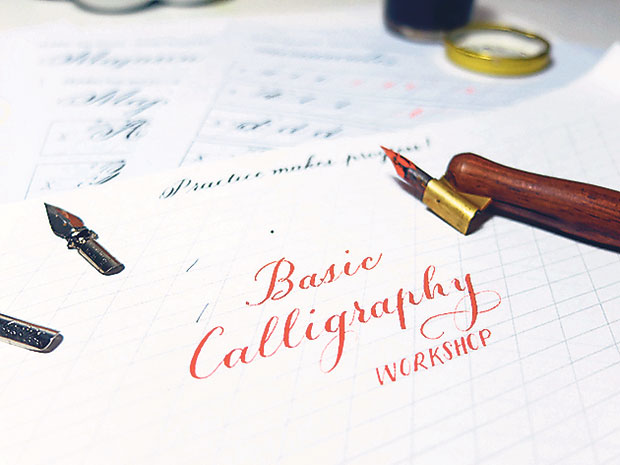 Practice makes progress!
Basic
Calligraphy
WORKSHOP